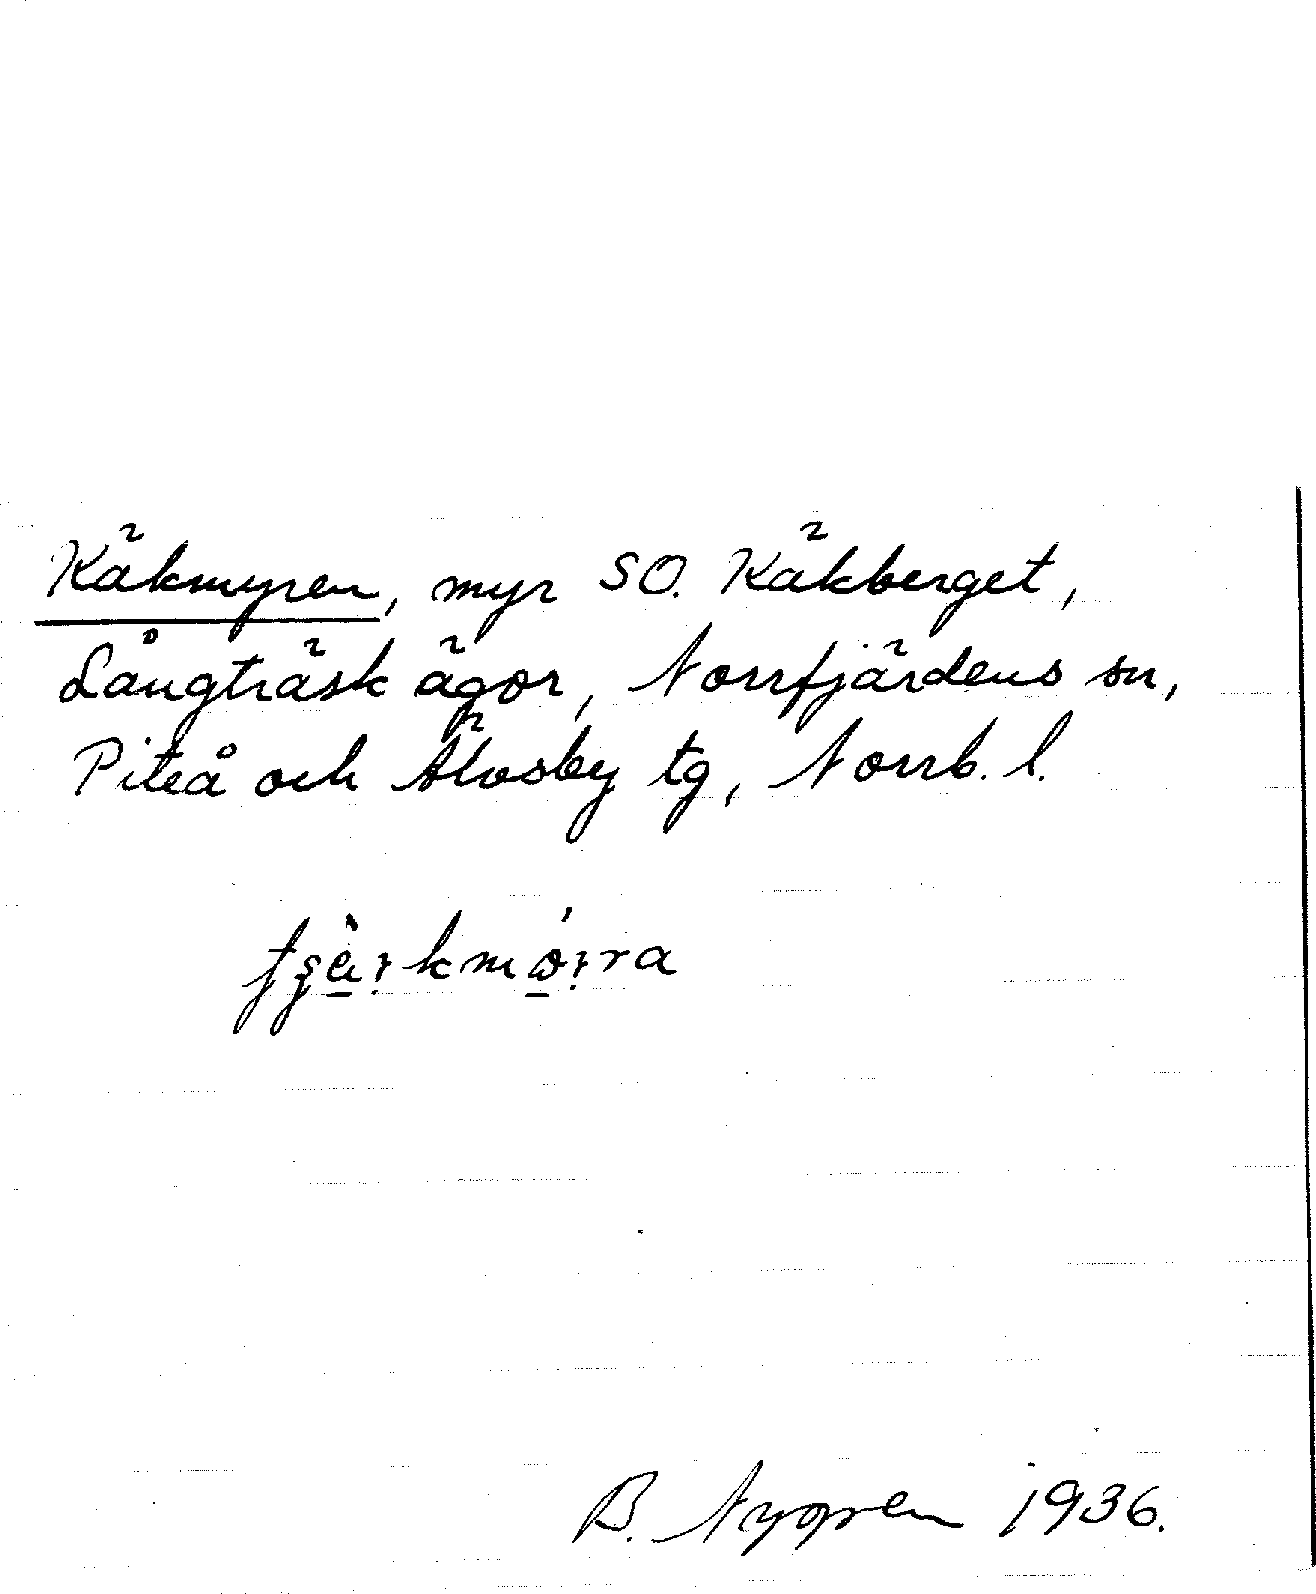 Käkmyren, myr SO. Käkberget,
Långträsk ägor, Norrfjärdens sn,
Piteå och Älvsby tg, Norrb. l.
B. Nygren 1936.